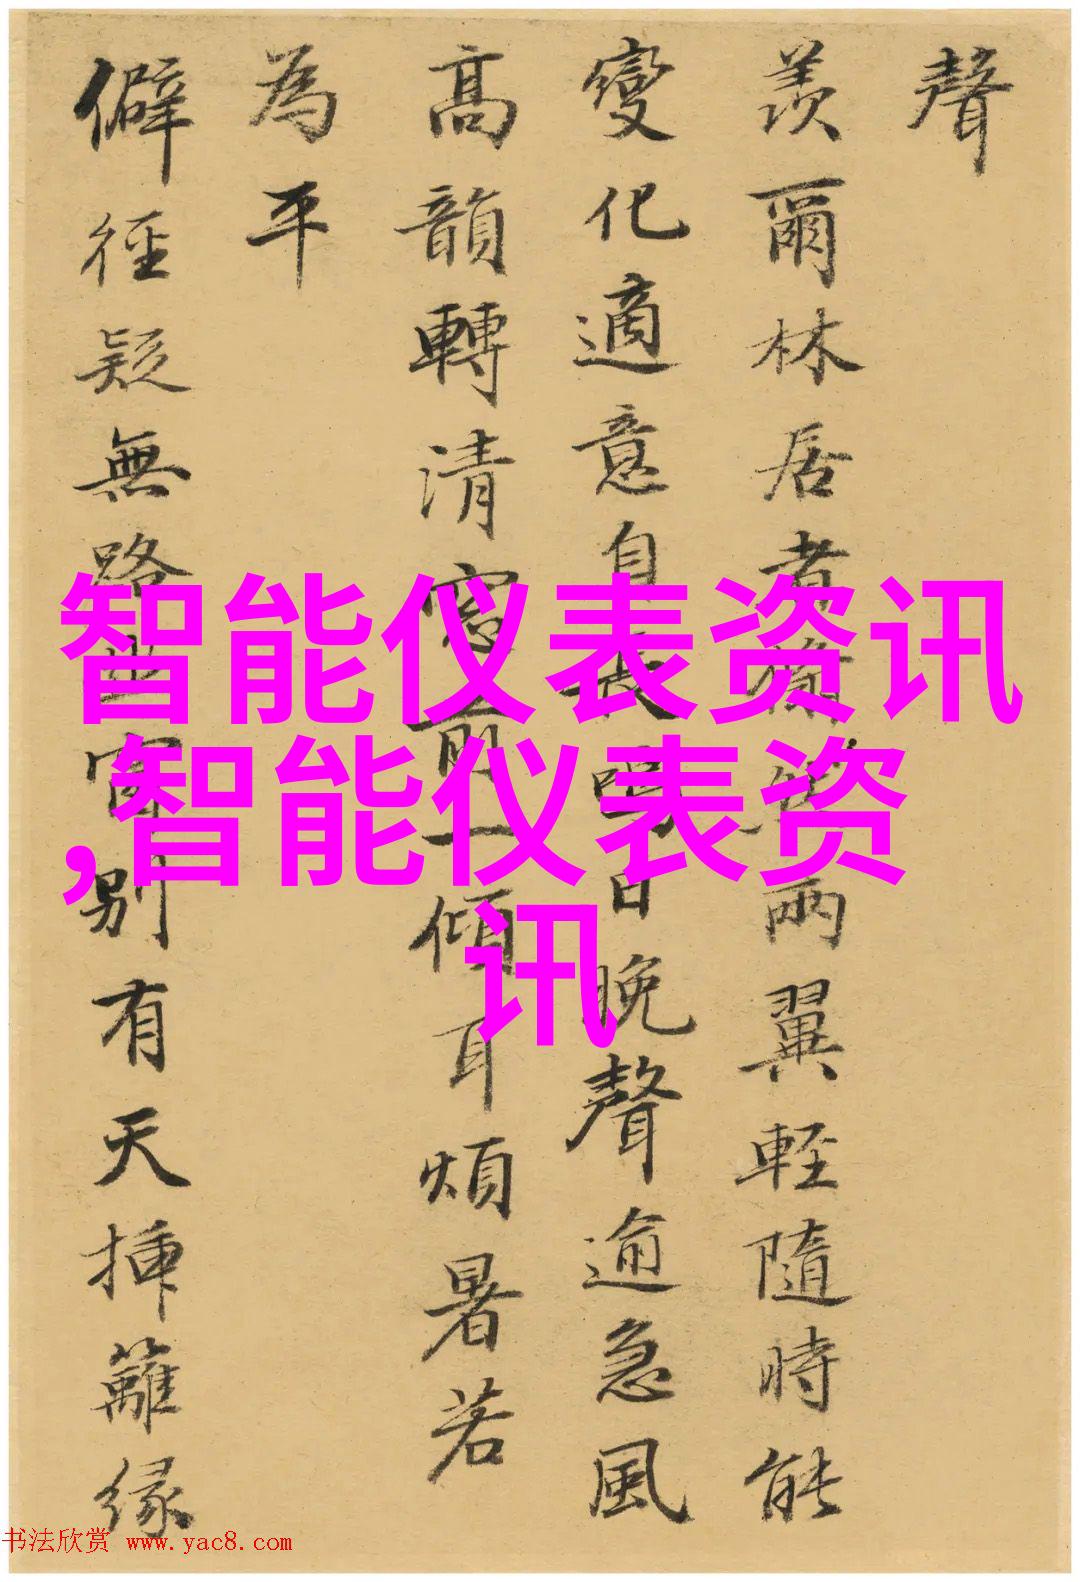 聲
羨爾林居者兩翼輕隨時能
變化適意自長鳴日晚聲逾急風
高韻轉清窓前一傾耳煩暑若
為平
僻徑疑無路山窗別有天插籬緣
智能仪表资讯
,智能仪表资
讯
书法欣赏 www.yac8.com